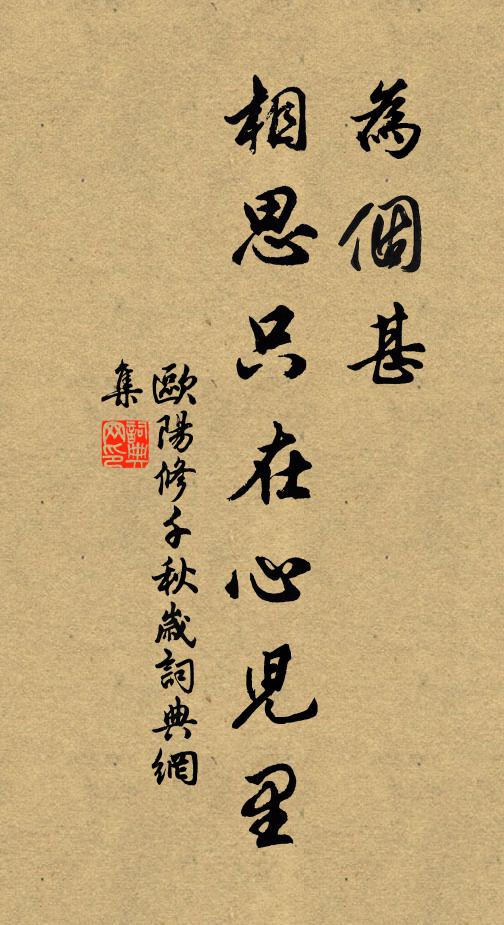 為個甚
相思只在心兒里
歐陽修千秋歲詞典網
集
詞典
网印